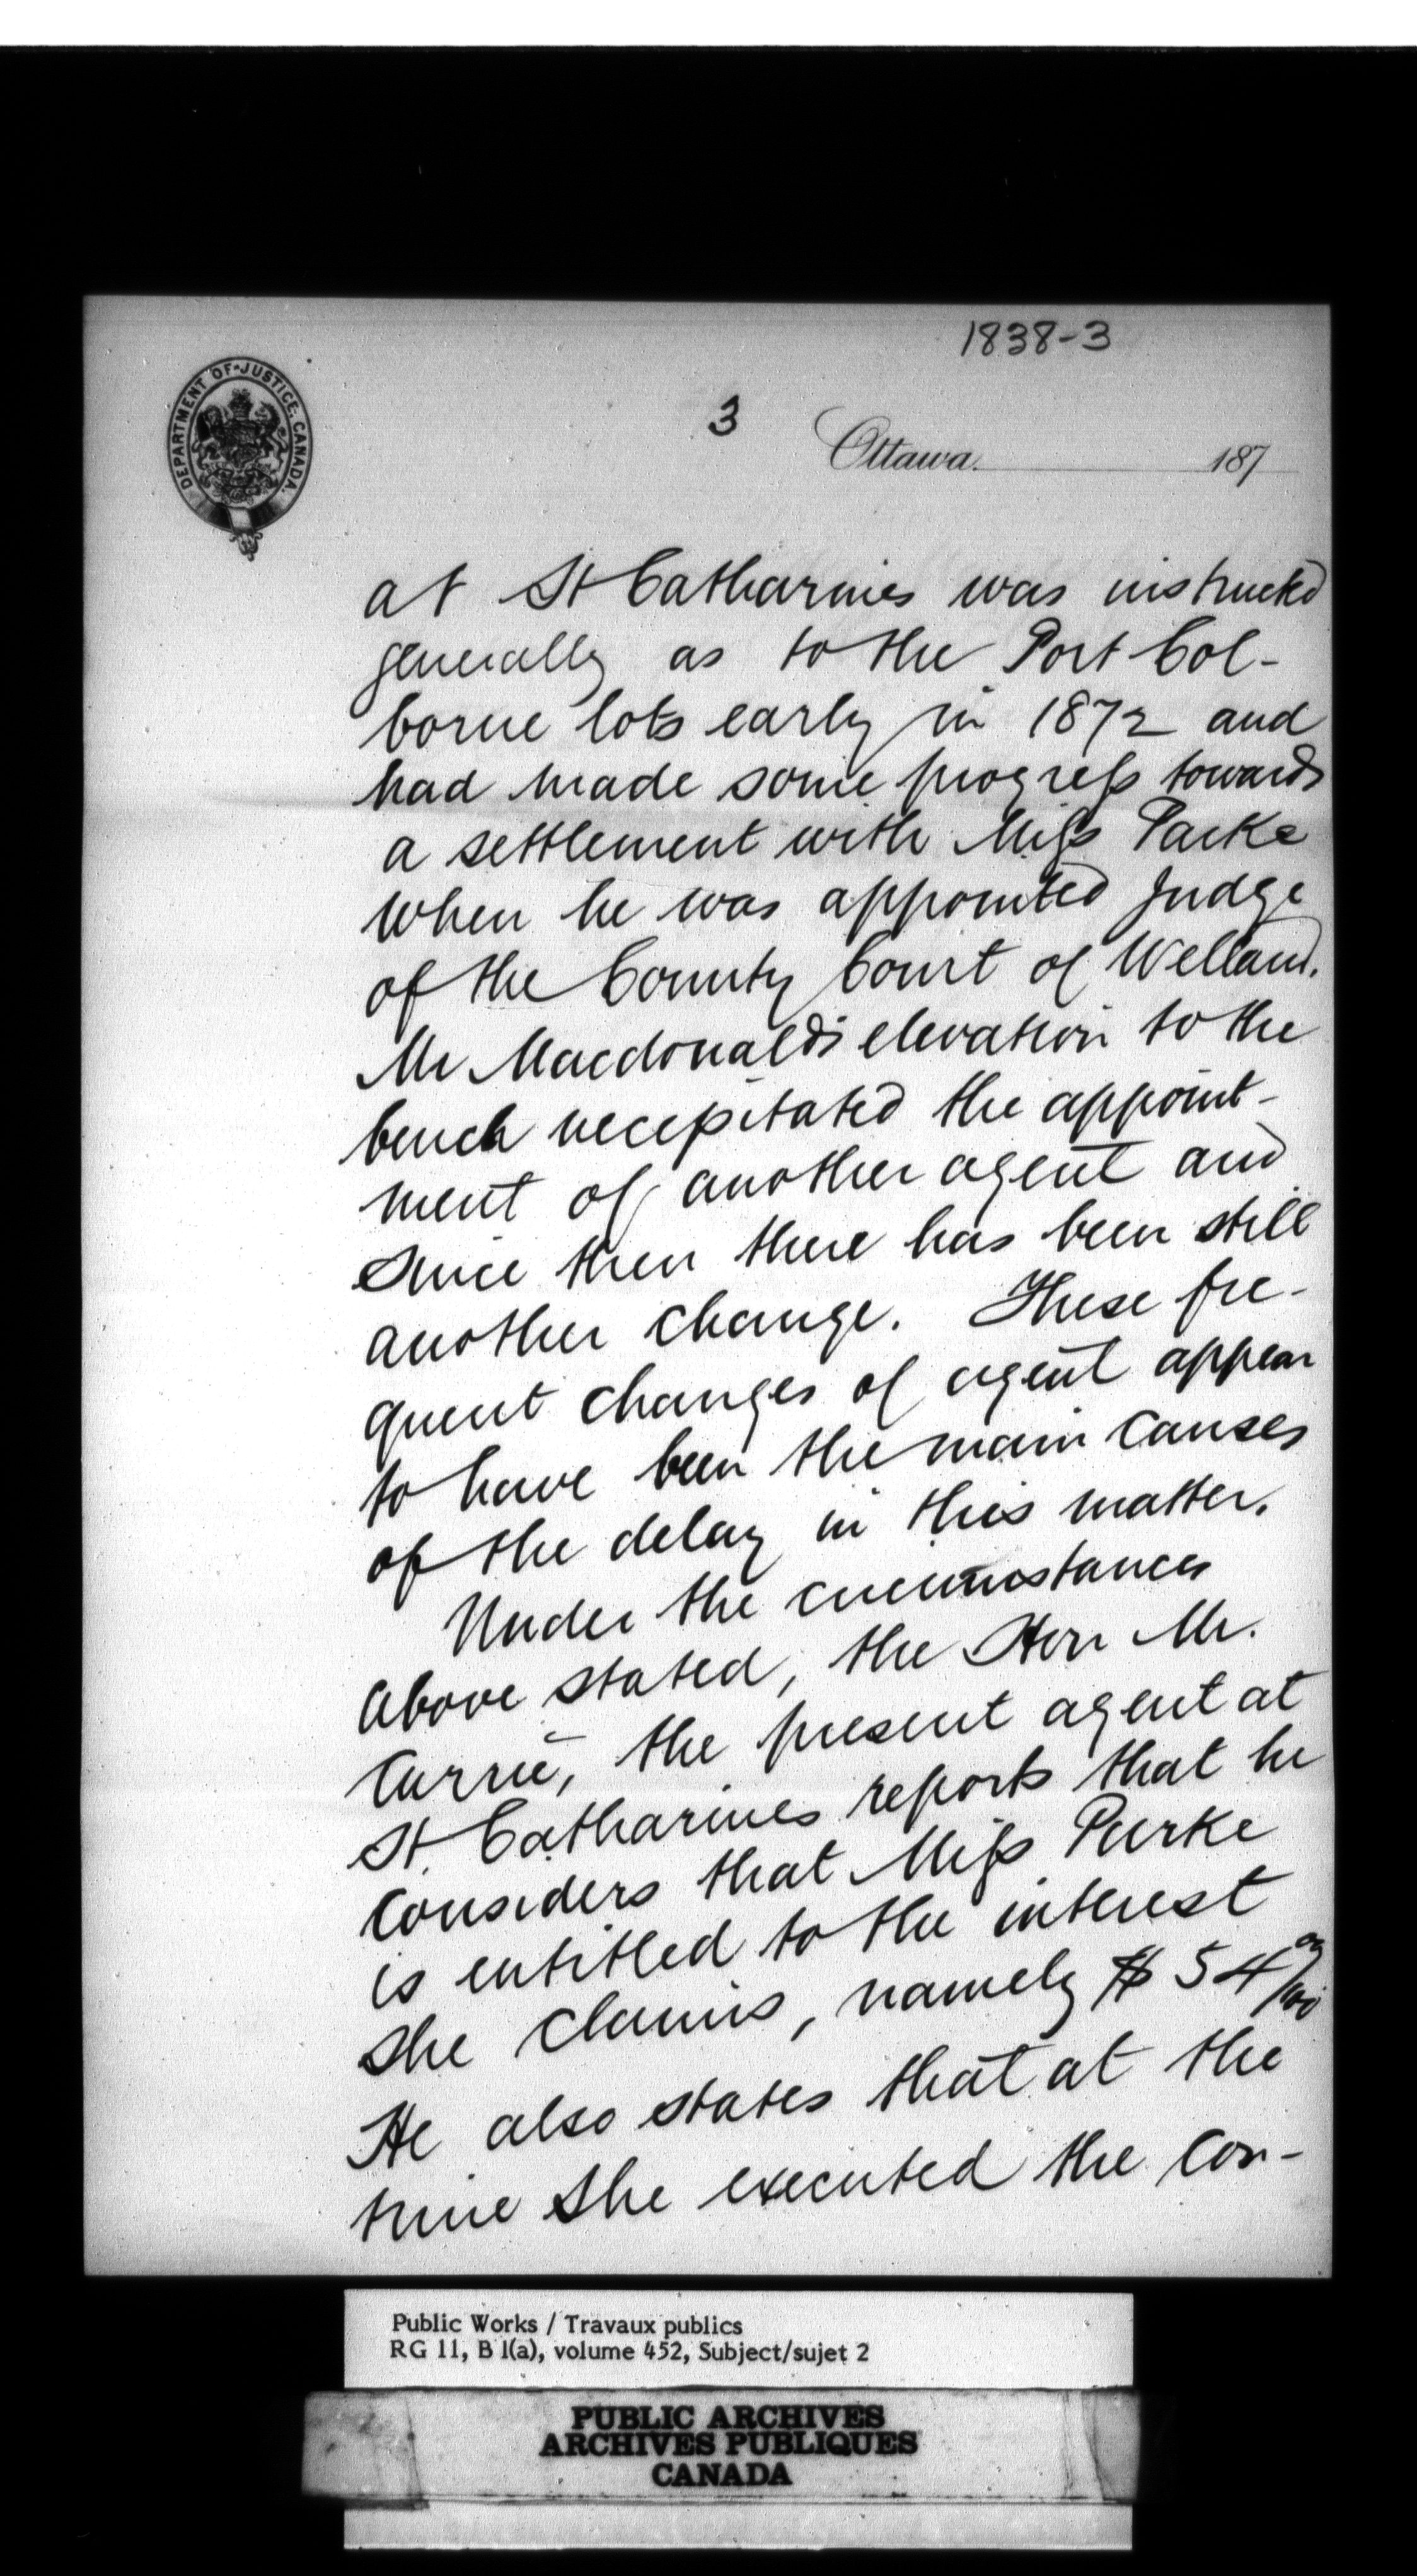 1838-3
DEPARTMENT OF JUSTICE, CANADA.
3
Ottawa. 187
at St Catharines was instructed
generally as to the Port Col-
borne lots early in 1872 and
had made some progress towards
a settlement with Miss Parke
when he was appointed Judge
of the County Court of Welland.
Mr Macdonald's elevation to the
bench necessitated the appoint-
ment of another agent and
since then there has been still
another change. These fre-
quent changes of agent appear
to have been the main causes
of the delay in this matter.
Under the circumstances
above stated, the Hon Mr.
Currie, the present agent at
St. Catharines reports that he
considers that Miss Parke
is entitled to the interest
she claims, namely $54
He also states that at the
time she executed the con-
Public Works / Travaux publics
RG 11, B 1(a), volume 452, Subject/sujet 2
PUBLIC ARCHIVES
ARCHIVES PUBLIQUES
CANADA